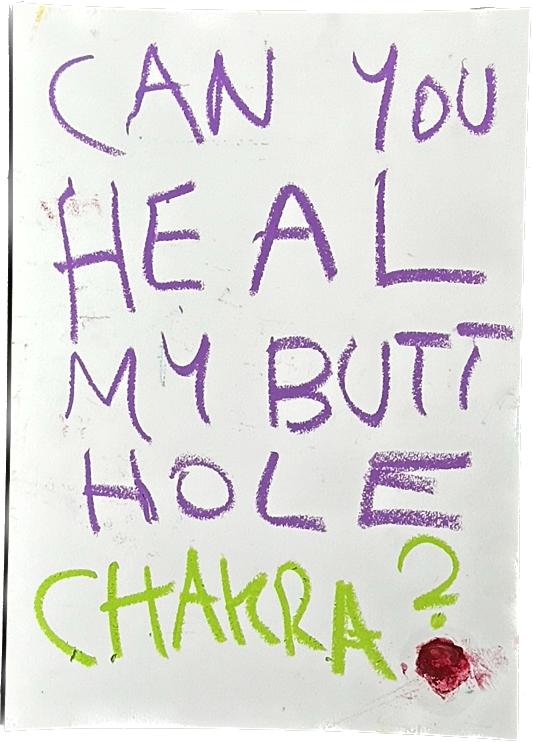 CAN YOU
HEAL
MY BUTT
HOLE
CHAKRA?